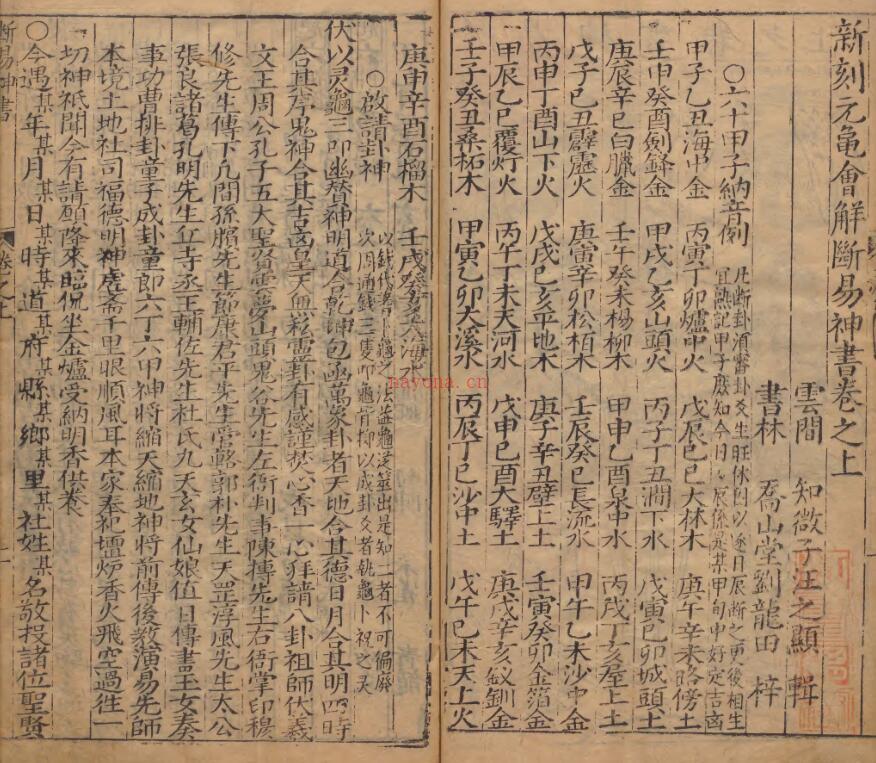 新刻元龟會解斷易神書卷之上
雲間 知微子汪之顯 輯
書林 喬山堂劉龍田 梓
○六十甲子納音例 凡斷卦須審卦爻生旺休囚以逐日辰斷之更後相生
宜熟記甲子庶知今日辰係是某甲旬中好定吉凶
甲子乙丑海中金 丙寅丁卯爐中火 戊辰己巳大林木 庚午辛未路傍土
壬申癸酉劍鋒金 甲戌乙亥山頭火 丙子丁丑澗下水 戊寅己卯城頭土
庚辰辛巳白臘金 壬午癸未楊柳木 甲申乙酉泉中水 丙戌丁亥屋上土
戊子己丑霹靂火 庚寅辛卯松栢木 壬辰癸巳長流水 甲午乙未沙中金
丙申丁酉山下火 戊戌己亥平地木 庚子辛丑壁上土 壬寅癸卯金箔金
甲辰乙巳覆灯火 丙午丁未天河水 戊申己酉大驛土 庚戌辛亥釵釧金
壬子癸丑桑柘木 甲寅乙卯大溪水 丙辰丁巳沙中土 戊午己未天上火
庚申辛酉石榴木 壬戌癸亥大海水
○啟請卦神 以錢代蓍卜龜之法並龜筮並出是知二者不可偏廢
次用通錢三隻叩龜背掷以成卦爻者執龜卜祝之
伏以灵龜三叩幽賛神明道合乾坤包凾萬象卦者天地合其德日月合其明四時
合其序鬼神合其吉凶皇天無私靈卦有感謹焚心香一心拜請八卦祖師伏羲
文王周公孔子五大聖賢雲夢山頭鬼谷先生左衙判事陳摶先生右衙掌印穆
修先生傳下凡間孫臏先生節康君平先生管輅郭朴先生天罡淳風先生太公
張良諸葛孔明先生丘寺丞王輔佐先生杜氏九天玄女仙娘值日傳書玉女奏
事功曹排卦童子成卦童郎六丁六甲神將縮天縮地神將前傳後教演易先師
本境土地社司福德明神虗齋千里眼順風耳本家奉祀壇炉香火飛空過往一
切神祇聞今有請願降來臨侃坐金爐受納明香供養
○今遇某年某月某日某時某道某府某縣某鄉某里某社姓某名敬投諸位聖賢
斷易神書
卷之上
一
hayona.cn